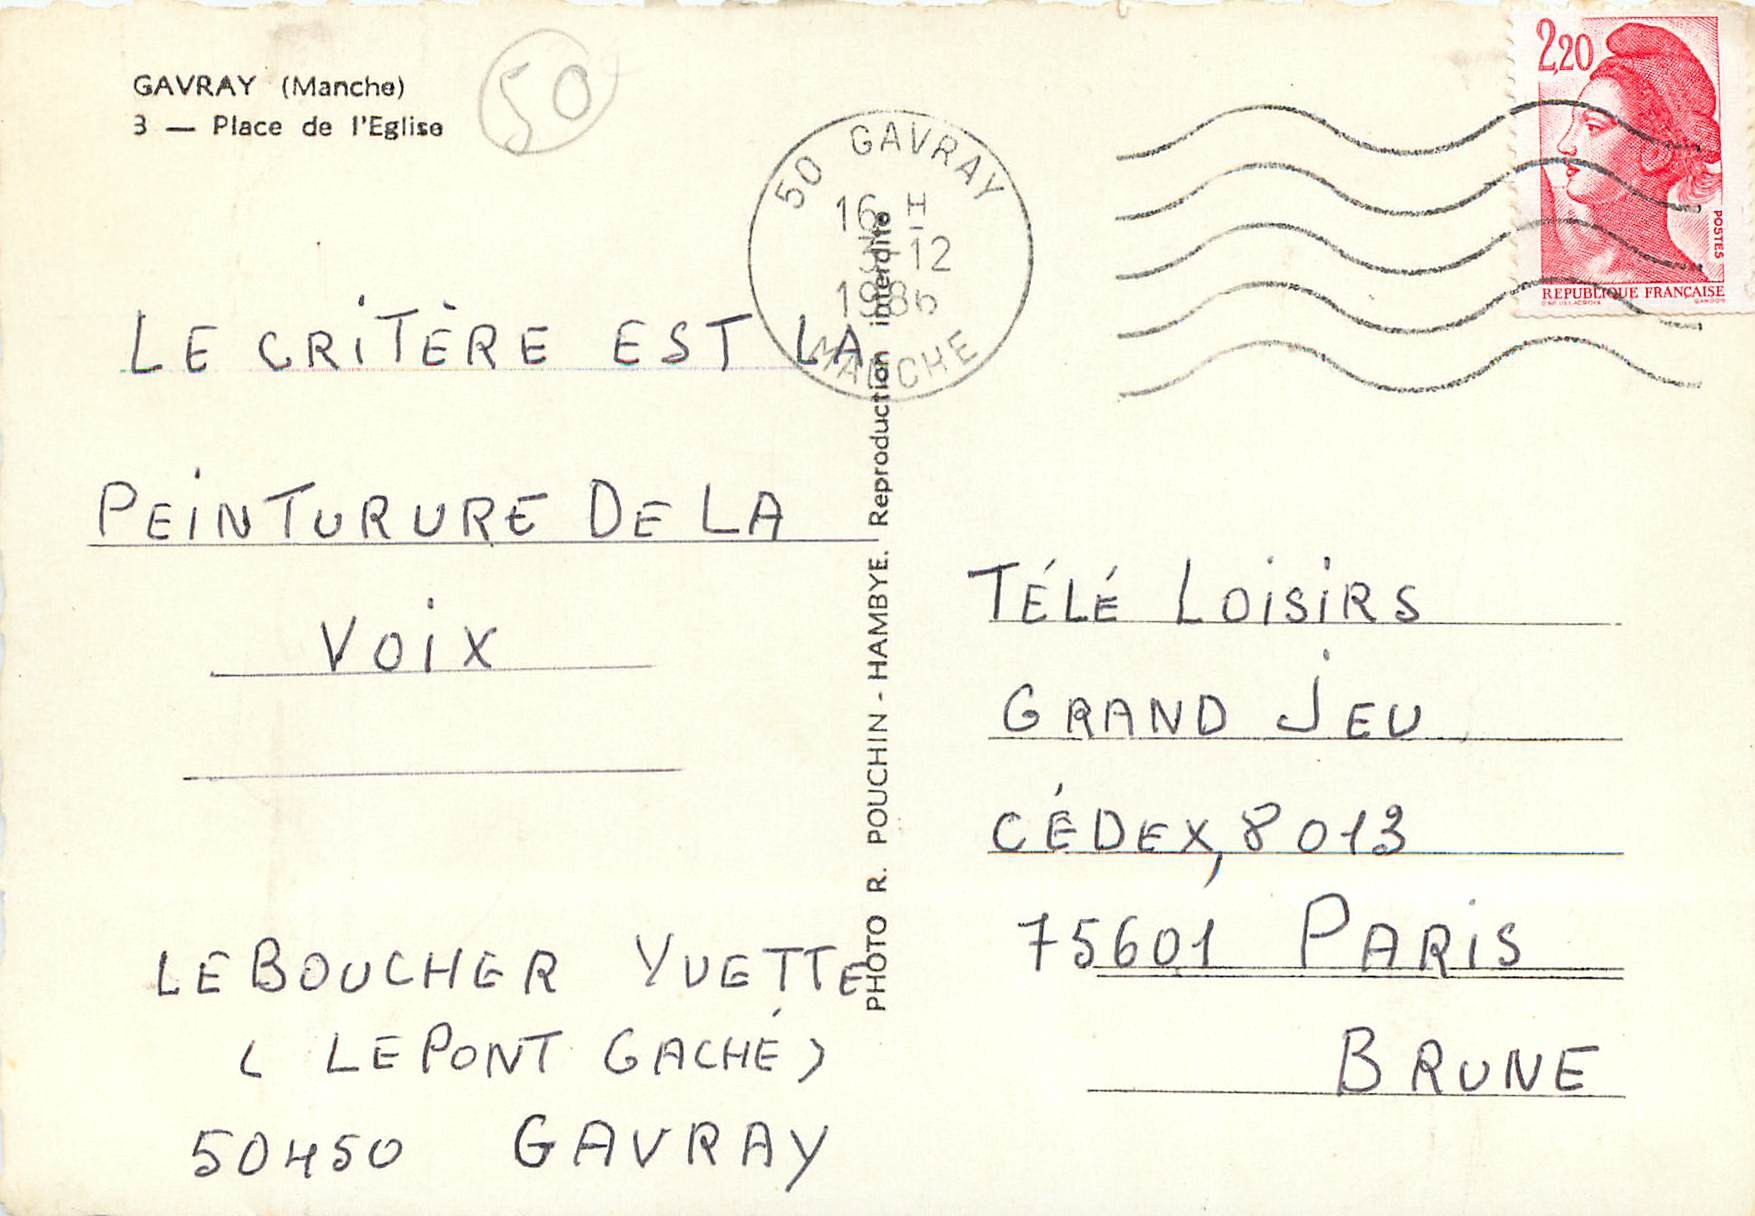 GAVRAY (Manche)
3 — Place de l'Eglise
50
50 GAVRAY
16 H
12
1986
MANCHE
2,20
POSTES
REPUBLIQUE FRANÇAISE
LE CRITÈRE EST LA
PEINTURURE DE LA
VOIX
LEBOUCHER YVETTE
( LE PONT GACHÉ )
50450 GAVRAY
PHOTO R. POUCHIN - HAMBYE. Reproduction interdite
TÉLÉ LOISIRS
GRAND JEU
CÉDEX, 8013
75601 PARIS
BRUNE